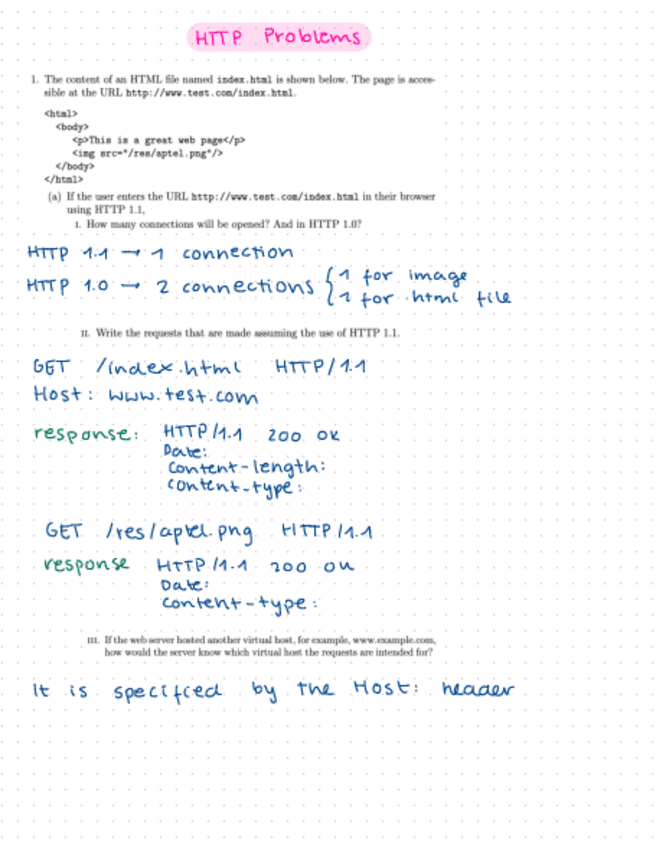 HTTP Problems
1. The content of an HTML file named index.html is shown below. The page is acces-
sible at the URL http://www.test.com/index.html.
<html>
<body>
<p>This is a great web page</p>
<img src="/res/aptel.png"/>
</body>
</html>
(a) If the user enters the URL http://www.test.com/index.html in their browser
using HTTP 1.1,
I. How many connections will be opened? And in HTTP 1.0?
HTTP 1.1 → 1 connection
HTTP 1.0 → 2 connections { 1 for image
1 for .html file
II. Write the requests that are made assuming the use of HTTP 1.1.
GET /index.html HTTP/1.1
Host: www.test.com
response: HTTP/1.1 200 OK
Date:
Content-length:
content-type:
GET /res/aptel.png HTTP/1.1
response HTTP/1.1 200 OK
Date:
content-type:
III. If the web server hosted another virtual host, for example, www.example.com,
how would the server know which virtual host the requests are intended for?
It is specified by the Host: header